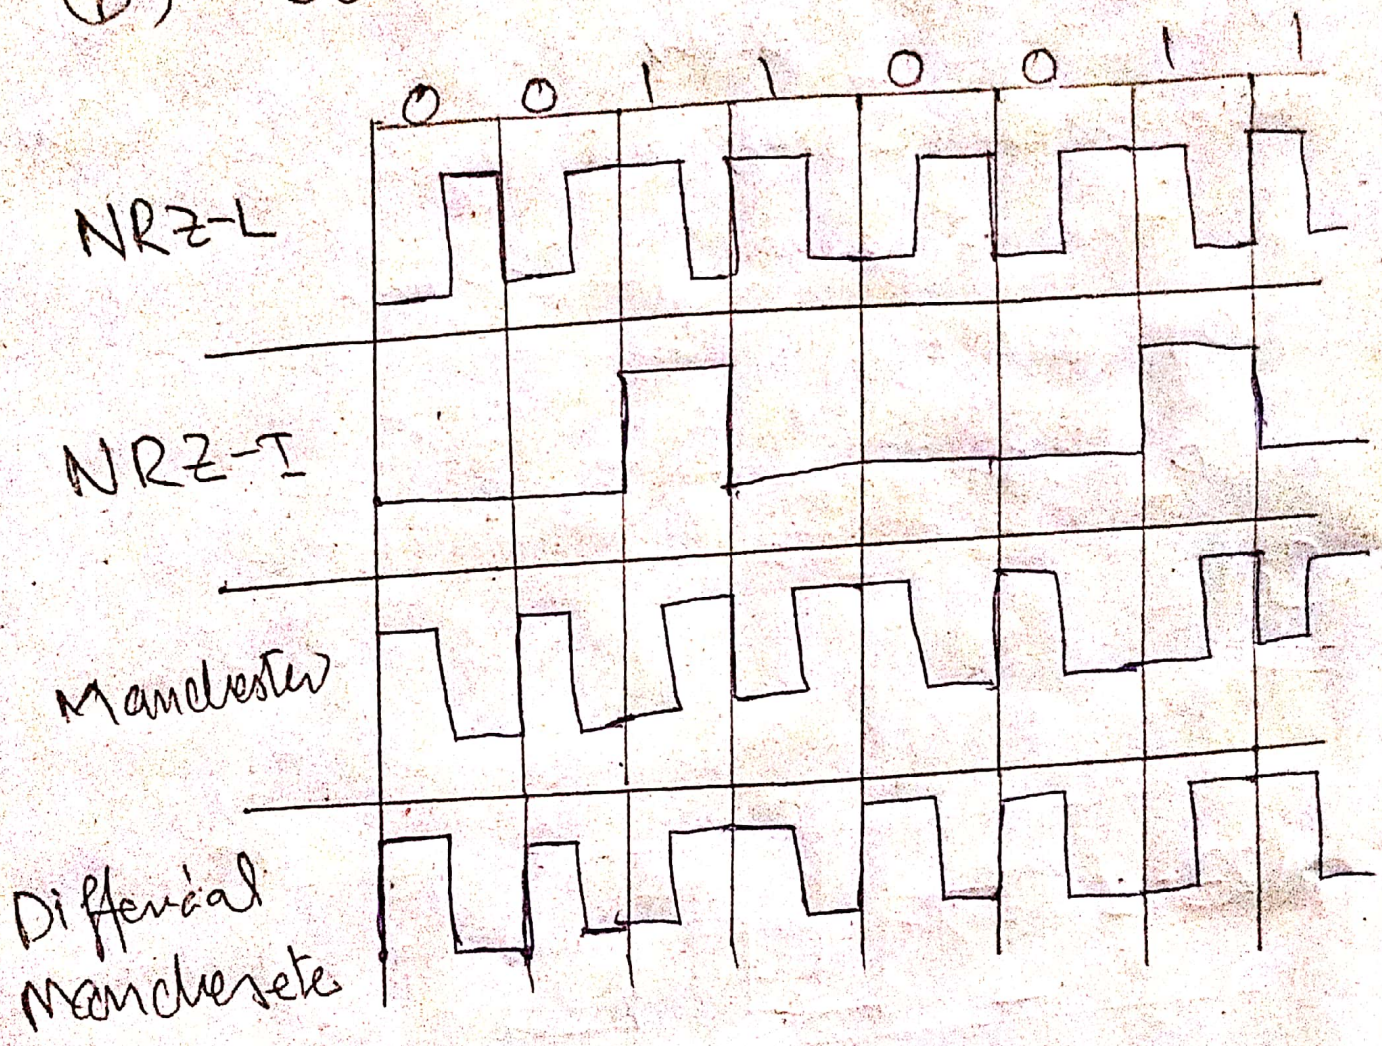 0 0 1 1 0 0 1 1
NRZ-L
NRZ-I
Manchester
Differcial
Manchesete